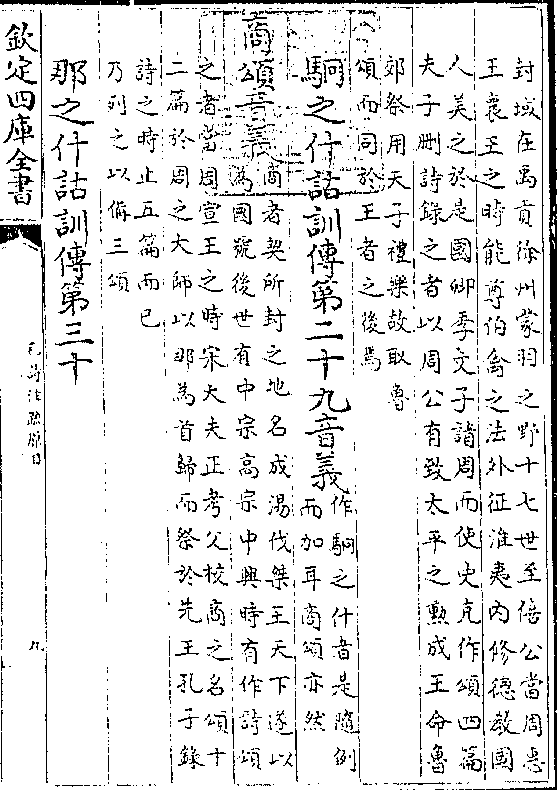 封域在禹貢徐州蒙羽之野十七世至僖公當周惠
王襄王之時能尊伯禽之法外征淮夷内修德教國
人美之於是國卿季文子請周而使史克作頌四篇
夫子刪詩錄之者以周公有致太平之勲成王命魯
郊祭用天子禮樂故取魯
頌而同於王者之後焉
駉之什詁訓傳第二十九音義
作駉之什者是隨例
而加耳商頌亦然
商頌音義
商者契所封之地名成湯伐桀王天下遂以
為國號後世有中宗高宗中興時有作詩頌
之者當周宣王之時宋大夫正考父校商之名頌十
二篇於周之大師以那為首歸而祭於先王孔子錄
詩之時止五篇而已
乃列之以備三頌
那之什詁訓傳第三十
欽定四庫全書
毛詩注疏原目
九